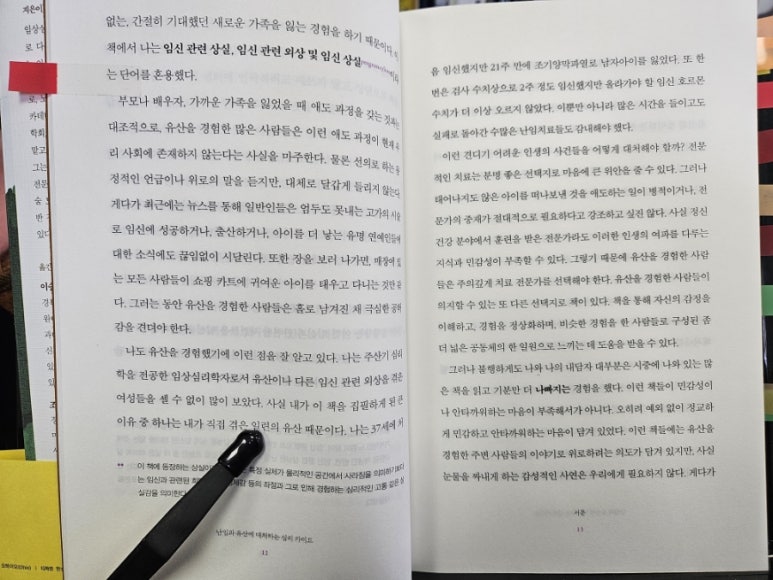 없는, 간절히 기대했던 새로운 가족을 잃는 경험을 하기 때문이다. 이
책에서 나는 임신 관련 상실, 임신 관련 외상 및 임신 상실
는 단어를 혼용했다.
부모나 배우자, 가까운 가족을 잃었을 때 애도 과정을 갖는 것과는
대조적으로, 유산을 경험한 많은 사람들은 이런 애도 과정이 현재 우
리 사회에 존재하지 않는다는 사실을 마주한다. 물론 선의로 하는 긍
정적인 언급이나 위로의 말을 듣지만, 대체로 달갑게 들리지 않는다.
게다가 최근에는 뉴스를 통해 일반인들은 엄두도 못내는 고가의 시술
로 임신에 성공하거나, 출산하거나, 아이를 더 낳는 유명 연예인들에
대한 소식에도 끊임없이 시달린다. 또한 장을 보러 나가면, 매장에 있
는 모든 사람들이 쇼핑 카트에 귀여운 아이를 태우고 다니는 것만 같
다. 그러는 동안 유산을 경험한 사람들은 홀로 남겨진 채 극심한 공허
감을 견뎌야 한다.
나도 유산을 경험했기에 이런 점을 잘 알고 있다. 나는 주산기 심리
학을 전공한 임상심리학자로서 유산이나 다른 임신 관련 외상을 겪은
여성들을 셀 수 없이 많이 보았다. 사실 내가 이 책을 집필하게 된 큰
이유 중 하나는 내가 직접 겪은 일련의 유산 때문이다. 나는 37세에 처
** 이 책에 등장하는 상실이 특정 실체가 물리적인 공간에서 사라짐을 의미하기보다
는 임신과 관련된 희 체감 등의 좌절과 그로 인해 경험하는 심리적인 고통 같은 상
실감을 의미한다
난임과 유산에 대처하는 심리 가이드
12
음 임신했지만 21주 만에 조기양막파열로 남자아이를 잃었다. 또 한
번은 검사 수치상으로 2주 정도 임신했지만 올라가야 할 임신 호르몬
수치가 더 이상 오르지 않았다. 이뿐만 아니라 많은 시간을 들이고도
실패로 돌아간 수많은 난임치료들도 감내해야 했다.
이런 견디기 어려운 인생의 사건들을 어떻게 대처해야 할까? 전문
적인 치료는 분명 좋은 선택지로 마음에 큰 위안을 줄 수 있다. 그러나
태어나지도 않은 아이를 떠나보낸 것을 애도하는 일이 병적이거나, 전
문가의 중재가 절대적으로 필요하다고 강조하고 싶진 않다. 사실 정신
건강 분야에서 훈련을 받은 전문가라도 이러한 인생의 여파를 다루는
지식과 민감성이 부족할 수 있다. 그렇기 때문에 유산을 경험한 사람
들은 주의깊게 치료 전문가를 선택해야 한다. 유산을 경험한 사람들이
의지할 수 있는 또 다른 선택지로 책이 있다. 책을 통해 자신의 감정을
이해하고, 경험을 정상화하며, 비슷한 경험을 한 사람들로 구성된 좀
더 넓은 공동체의 한 일원으로 느끼는 데 도움을 받을 수 있다.
그러나 불행하게도 나와 나의 내담자 대부분은 시중에 나와 있는 많
은 책을 읽고 기분만 더 나빠지는 경험을 했다. 이런 책들이 민감성이
나 안타까워하는 마음이 부족해서가 아니다. 오히려 예외 없이 정교하
게 민감하고 안타까워하는 마음이 담겨 있었다. 이런 책들에는 유산을
경험한 주변 사람들의 이야기로 위로하려는 의도가 담겨 있지만, 사실
눈물을 짜내게 하는 감성적인 사연은 우리에게 필요하지 않다. 게다가
서론
13